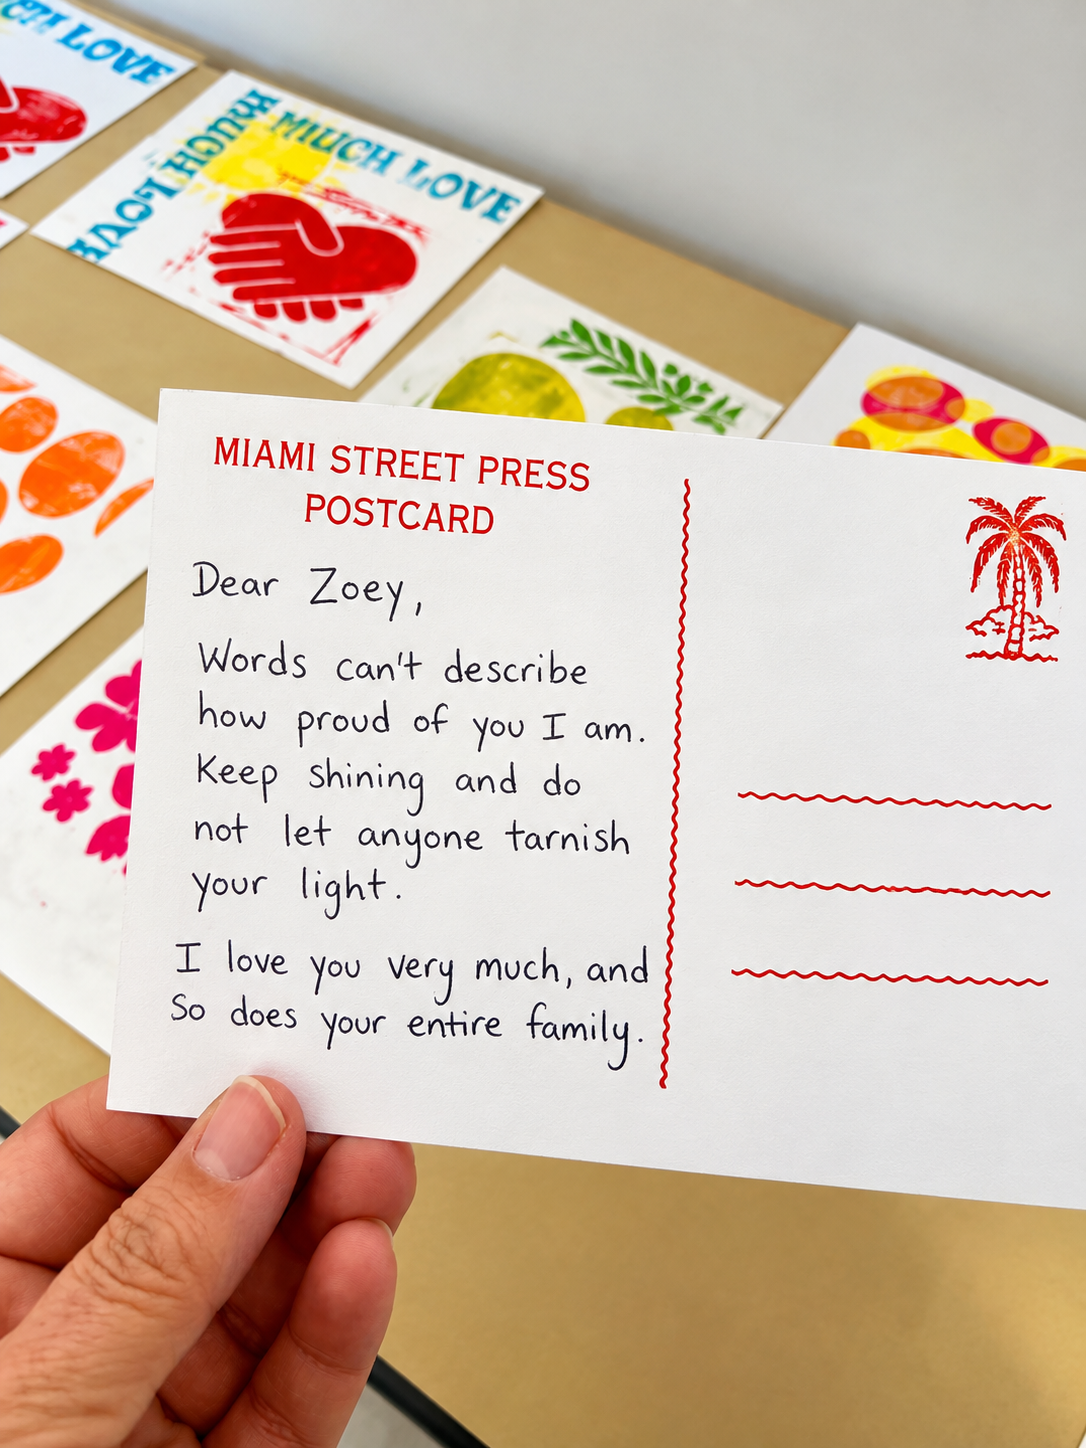 MUCH LOVE
MUCH LOVE
MIUCH LOVE
MIAMI STREET PRESS
POSTCARD
Dear Zoey,
Words can't describe
how proud of you I am.
Keep shining and do
not let anyone tarnish
your light.
I love you very much, and
So does your entire family.